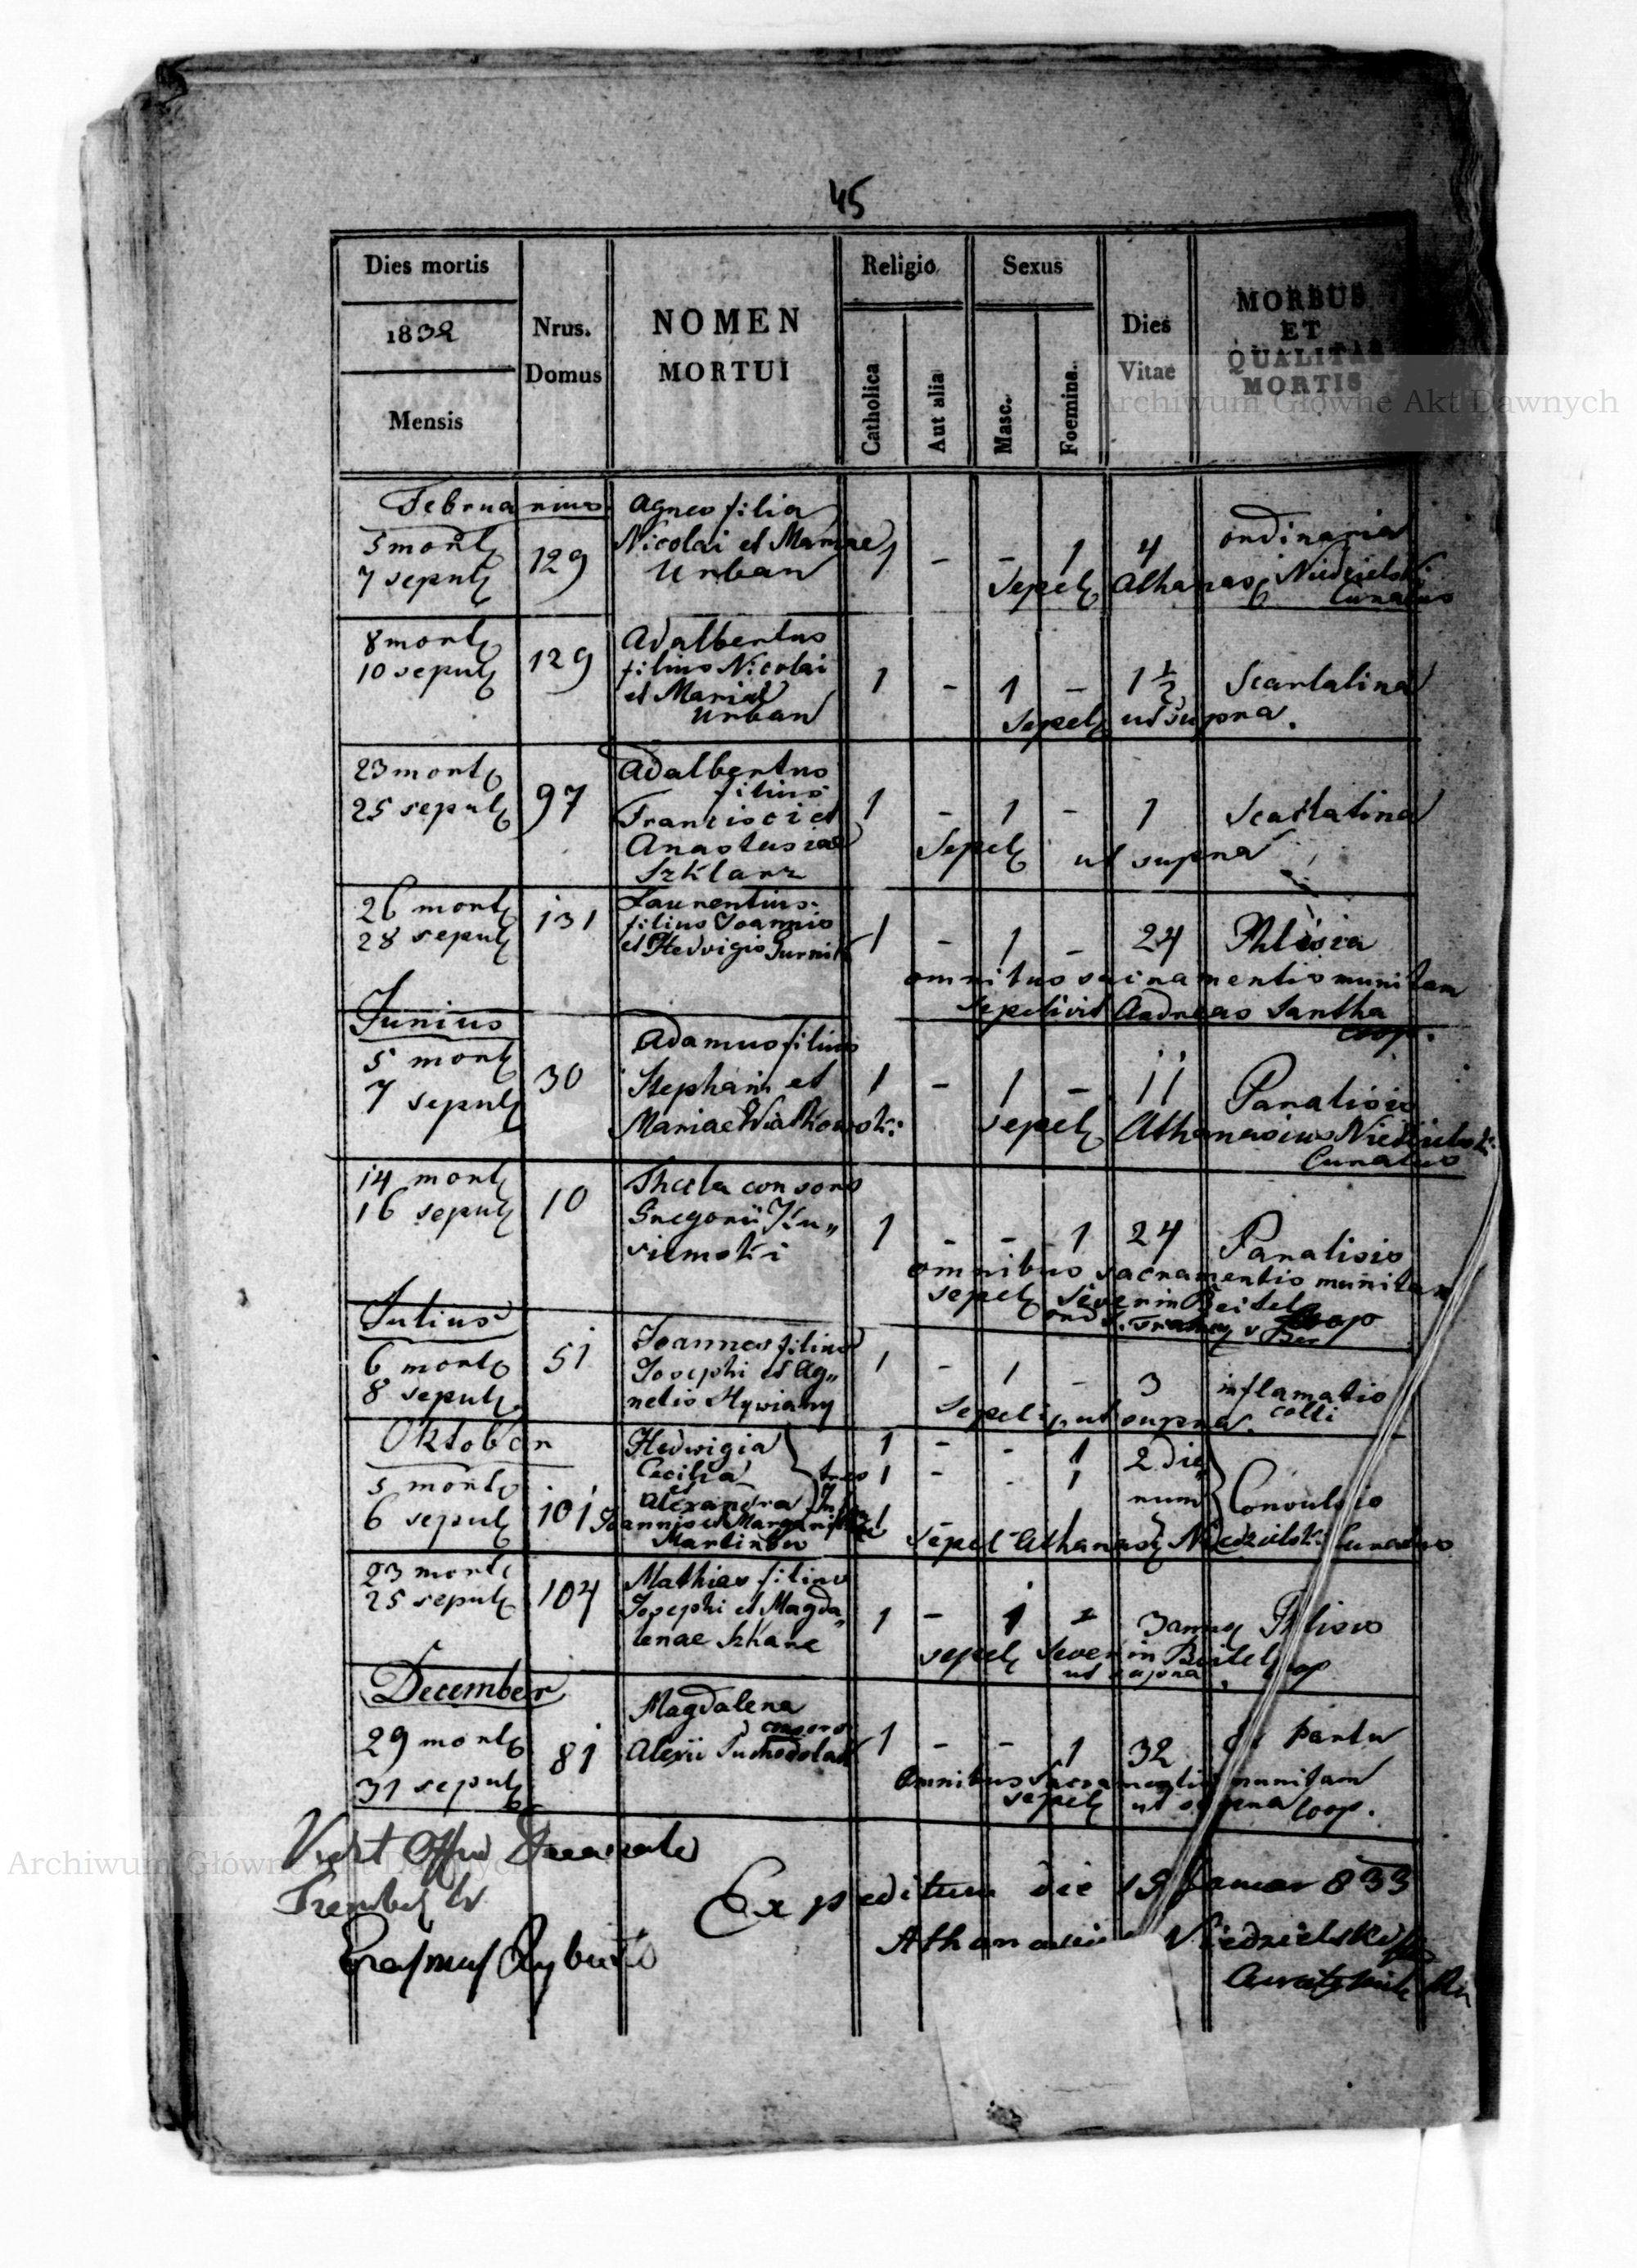 45
Dies mortis
1832
Mensis
Nrus.
Domus
NOMEN
MORTUI
Religio
Catholica
Aut alia
Sexus
Masc.
Foemina.
Dies
Vitae
MORBUS
ET
QUALITAS
MORTIS
Archiwum Główne Akt Dawnych
Februarius
5 mort
7 sepult
129
Agnes filia
Nicolai et Mariae
Urban
1 - - 1 4 ordinaria
Sepel Athanas Niedzielski
Curatus
8 mort
10 sepult
129
Adalbertus
filius Nicolai
et Mariae
Urban
1 - 1 - 1 1/2 Scarlatina
Sepel ut supra.
23 mort
25 sepult
97
Adalbertus
filius
Francisci et
Anastasiae
Szklarz
1 - 1 - 1 Scarlatina
Sepel ut supra
26 mort
28 sepult
131
Laurentius
filius Joannis
et Hedvigis
1 - 1 - 24
omnibus sacramentis munitam
sepelivit Andreas Santha
coop.
Junius
5 mort
7 sepult
30
Adamus filius
Stephani et
Mariae Wiatkowski
1 - 1 - 11 Paralisis
sepel Athanasius Niedzielski
Curatus
14 mort
16 sepult
10
Thecla consors
Gregorii Ku„
siemski
1 - - 1 24 Paralisis
omnibus sacramentis munitam
sepel Severin Beitel Coop
Julius
6 mort
8 sepult
51
Joannes filius
Josephi et Ag„
netis
1 - 1 - 3 inflamatio
colli
Sepel ut supra.
Oktober
5 mort
6 sepult
101
Hedwigia
Cecilia
et
Alexandra
tres
Joannis et Margarithae
1 - - 1
1 - - 1
1
2 die
num
Convulsio
Sepel Athanas Niedzielski Curatus
23 mort
25 sepult
104
Mathias filius
Josephi et Magda„
lenae
1 - 1 - 3
sepel Severin Beitel Coop
ut supra
December
29 mort
31 sepult
81
Magdalena
consors
Alexii
1 - - 1 32 partu
Omnibus Sacramentis munitam
sepel ut supra Coop.
Archiwum Główne Akt Dawnych
Expeditum die 19 Januar 833
Athanasius Niedzielski